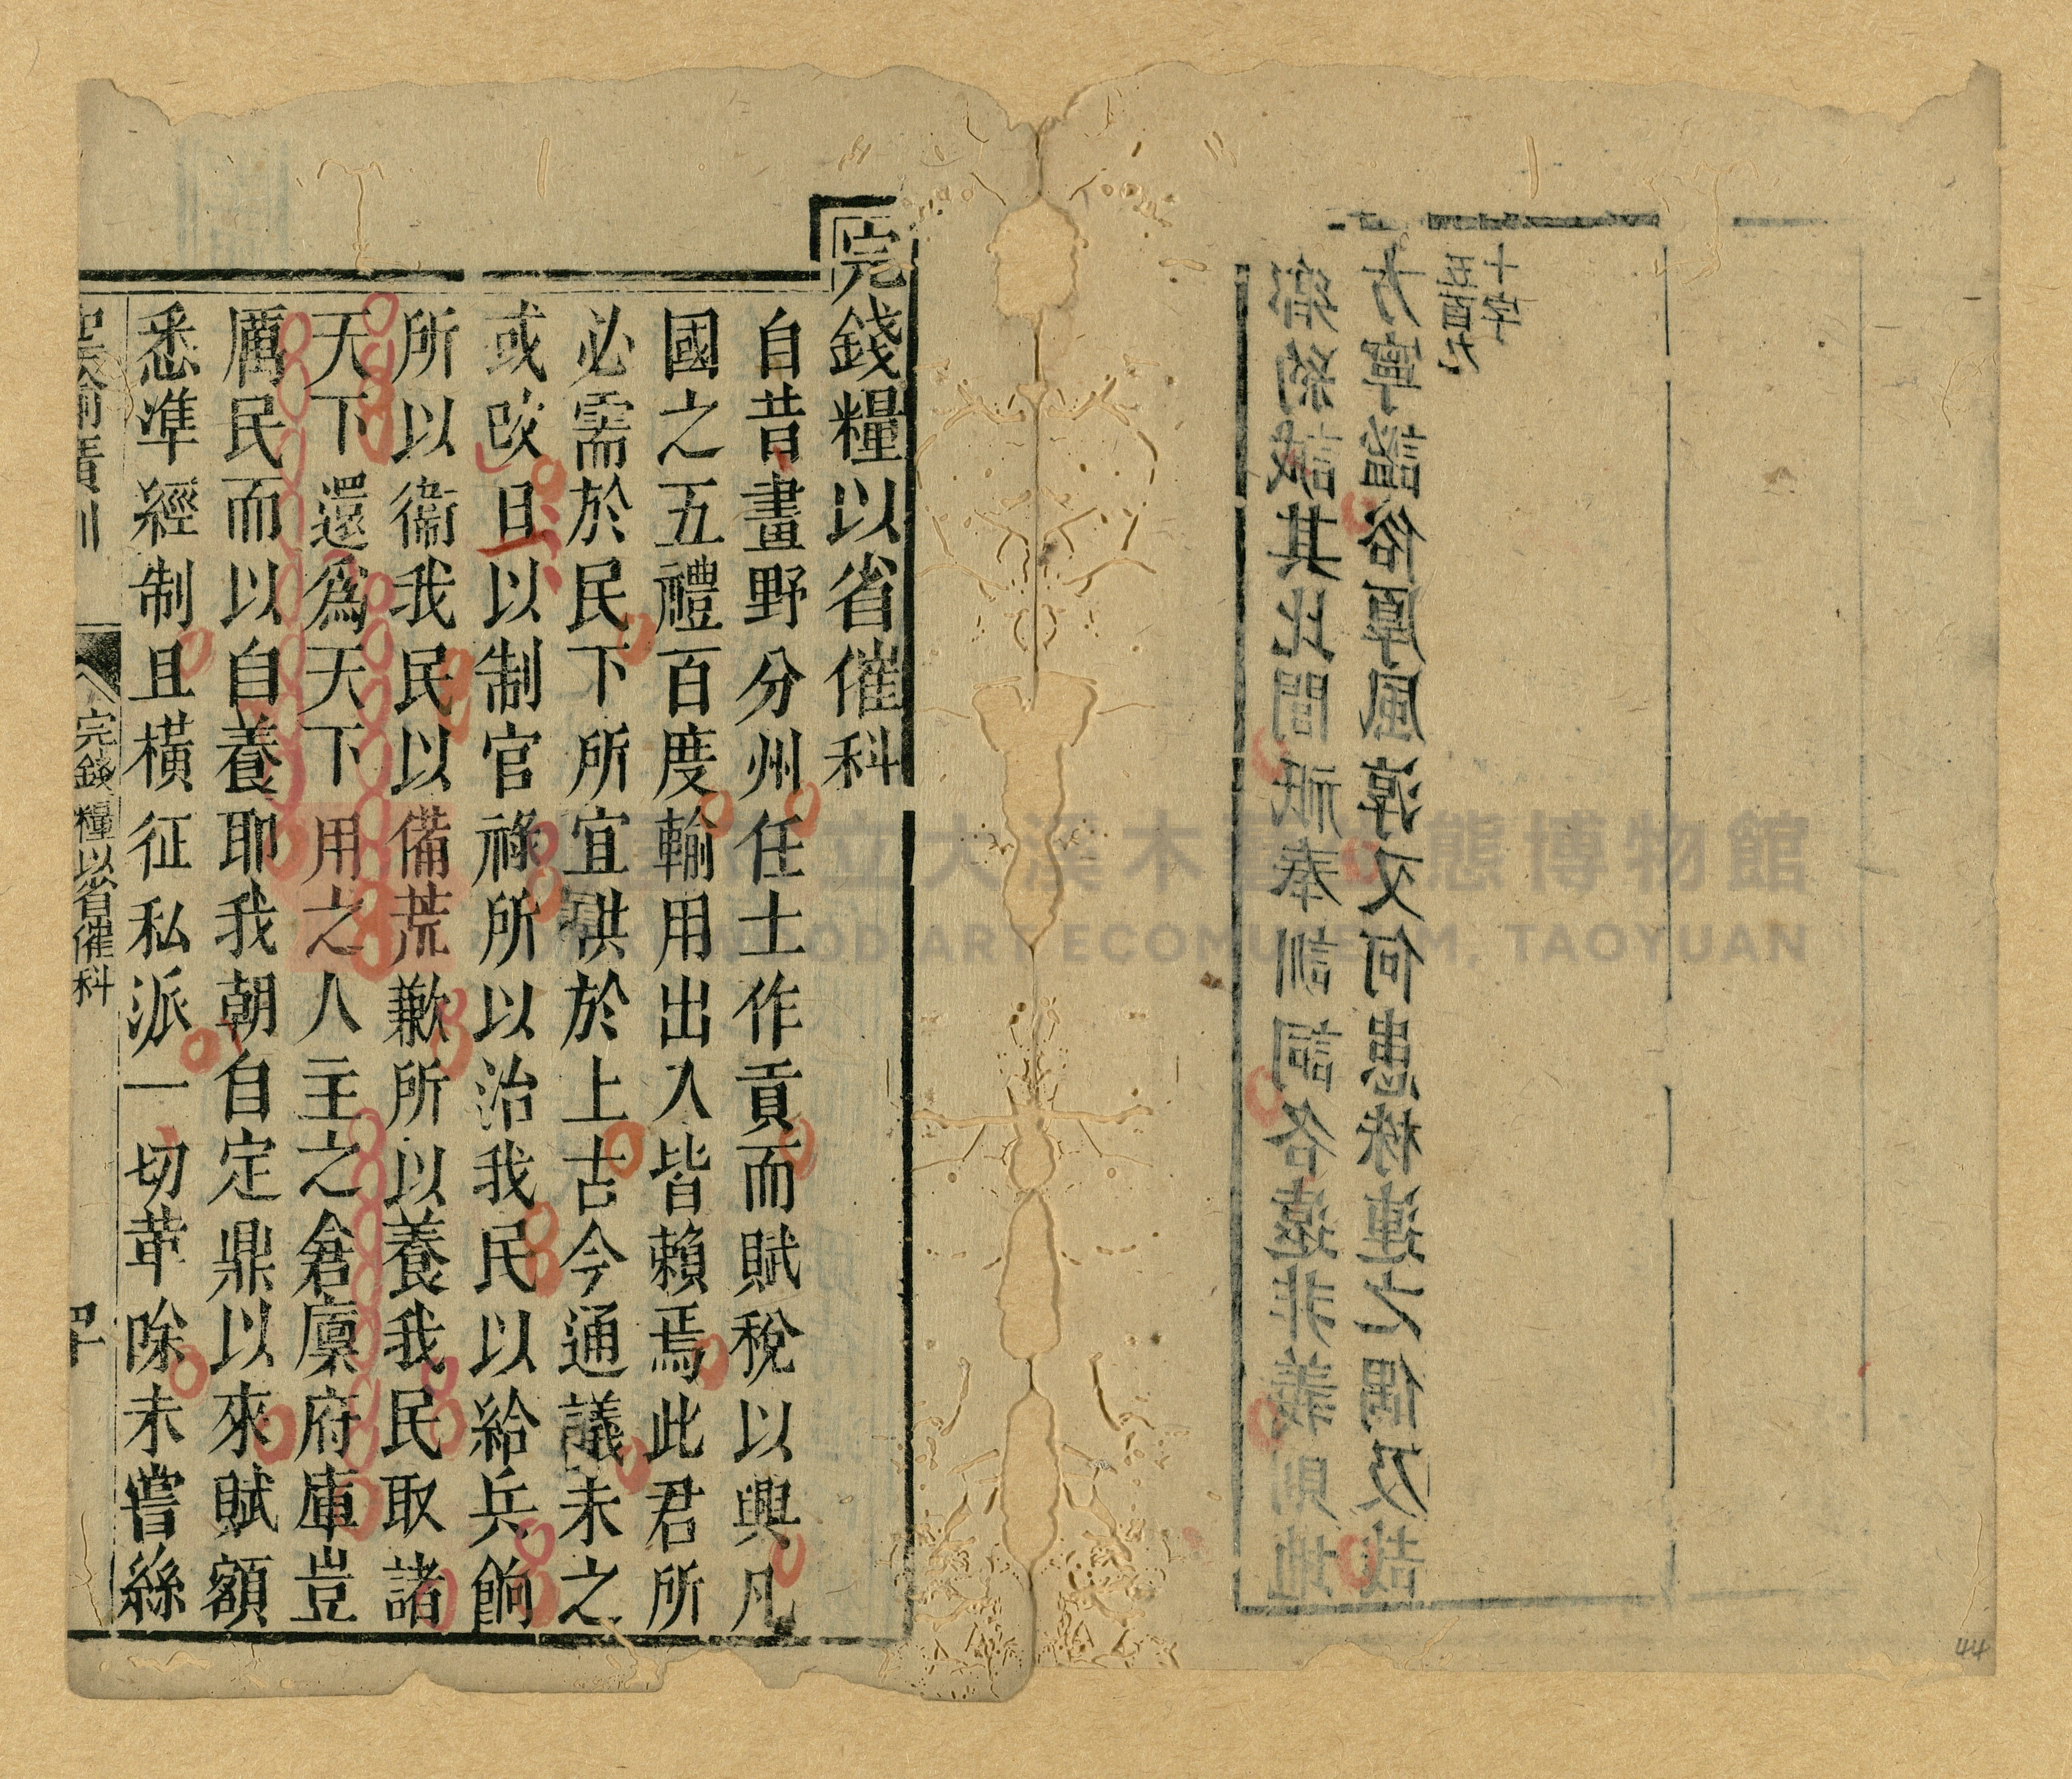 鄉約誡其比閭祇奉訓詞各遠非義則地
方寧謐俗厚風淳又何患株連之偶及哉
五百九
十字
完錢糧以省催科
自昔畫野分州任土作貢而賦稅以興凡
國之五禮百度輸用出入皆賴焉此君所
必需於民下所宜供於上古今通議未之
或改且以制官祿所以治我民以給兵餉
所以衞我民以備荒歉所以養我民取諸
天下還爲天下用之人主之倉廩府庫豈
厲民而以自養耶我朝自定鼎以來賦額
悉凖經制且橫征私派一切革除未嘗絲
完錢糧以省催科
立大溪木藝 態博物館
OOD ART ECOMUSEUM, TAOYUAN
44